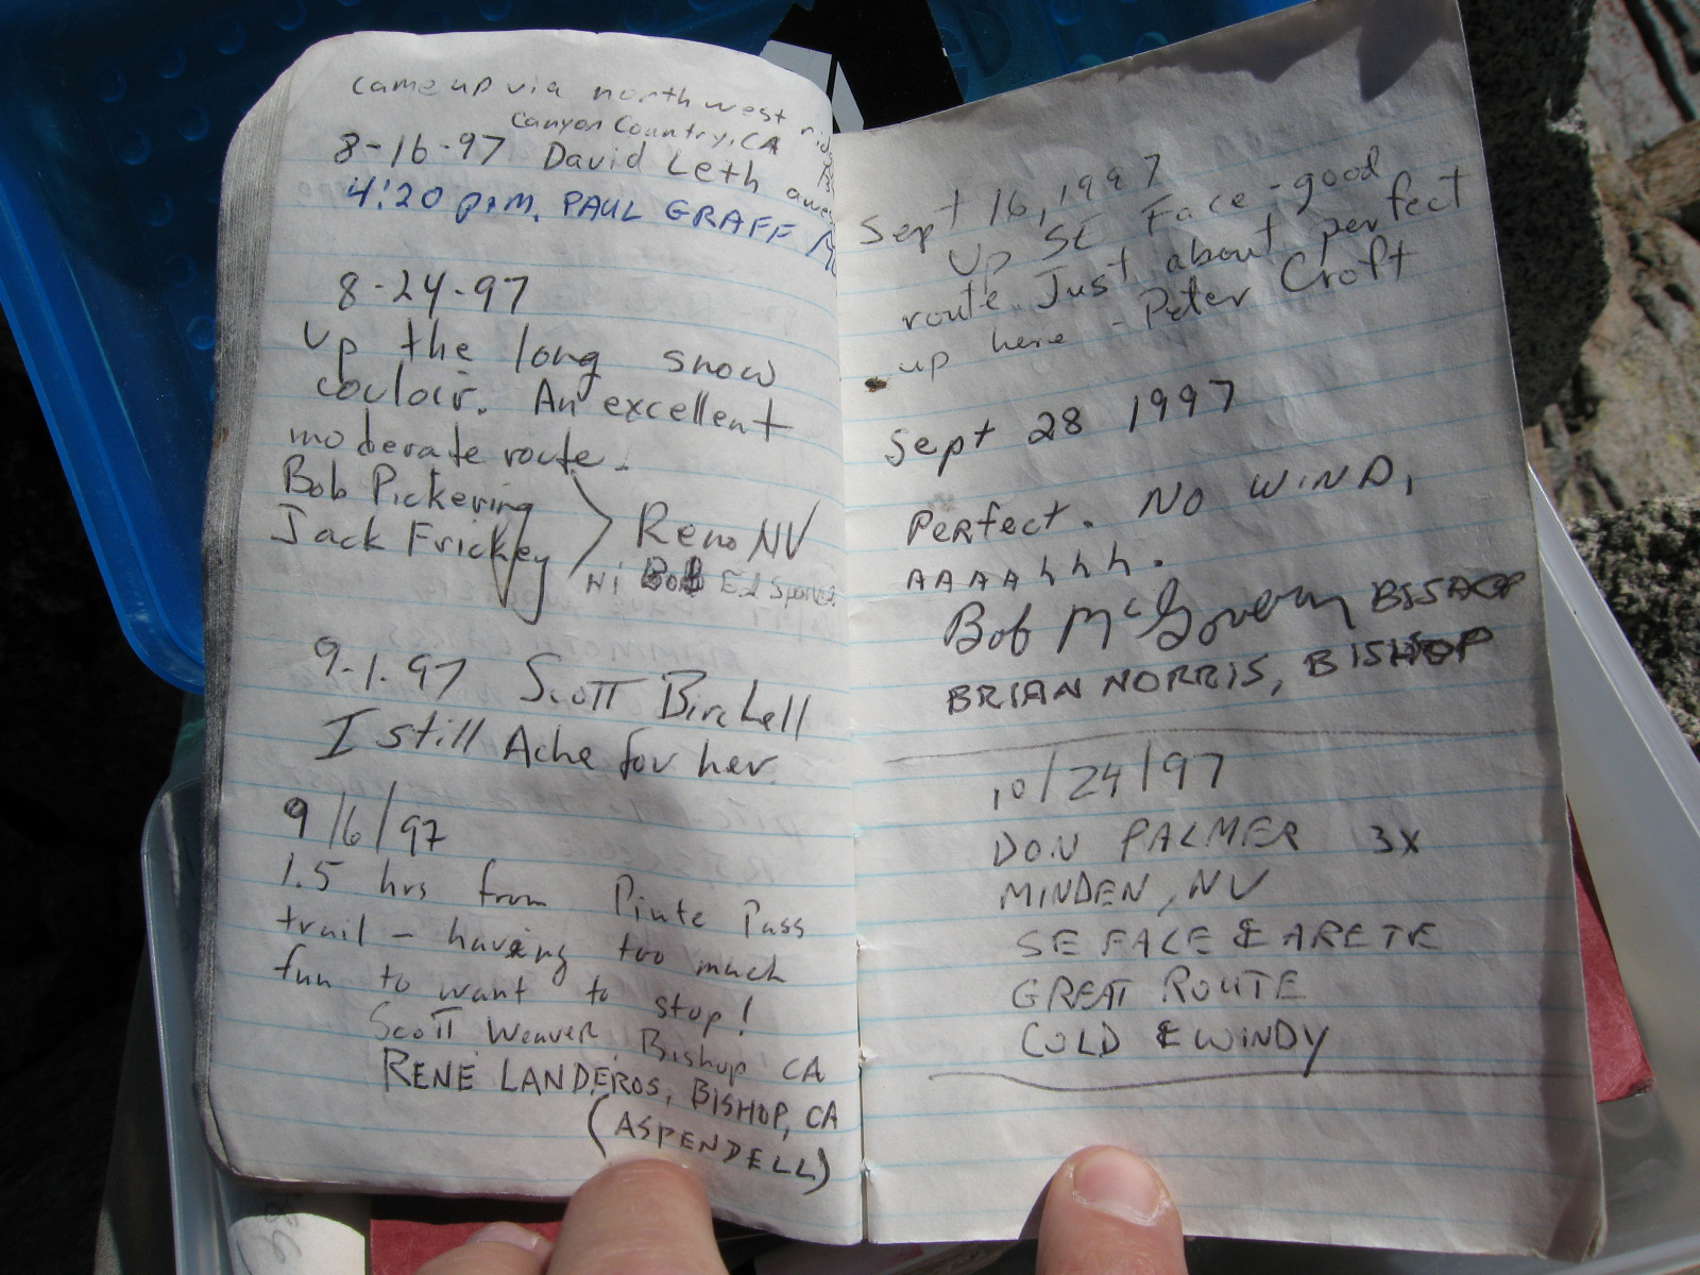 came up via northwest
Canyon Country, CA
8-16-97 David Leth
4:20 p.m. PAUL GRAFF
8-24-97
Up the long snow
couloir. An excellent
moderate route.
Bob Pickering
Jack Frickey
Reno NV
Hi Bob Ed
9-1-97 Scott Birchell
I still Ache for her.
9/6/97
1.5 hrs from Piute Pass
trail - having too much
fun to want to stop!
Scott Weaver, Bishop CA
RENE LANDEROS, BISHOP, CA
(ASPENDELL)
Sept 16, 1997
Up SE Face - good
route. Just about perfect
up here - Peter Croft
Sept 28 1997
Perfect. NO WIND,
AAAAhhh.
Bob McGovern BISHOP
BRIAN NORRIS, BISHOP
10/24/97
DON PALMER 3X
MINDEN, NV
SE FACE & ARETE
GREAT ROUTE
COLD & WINDY